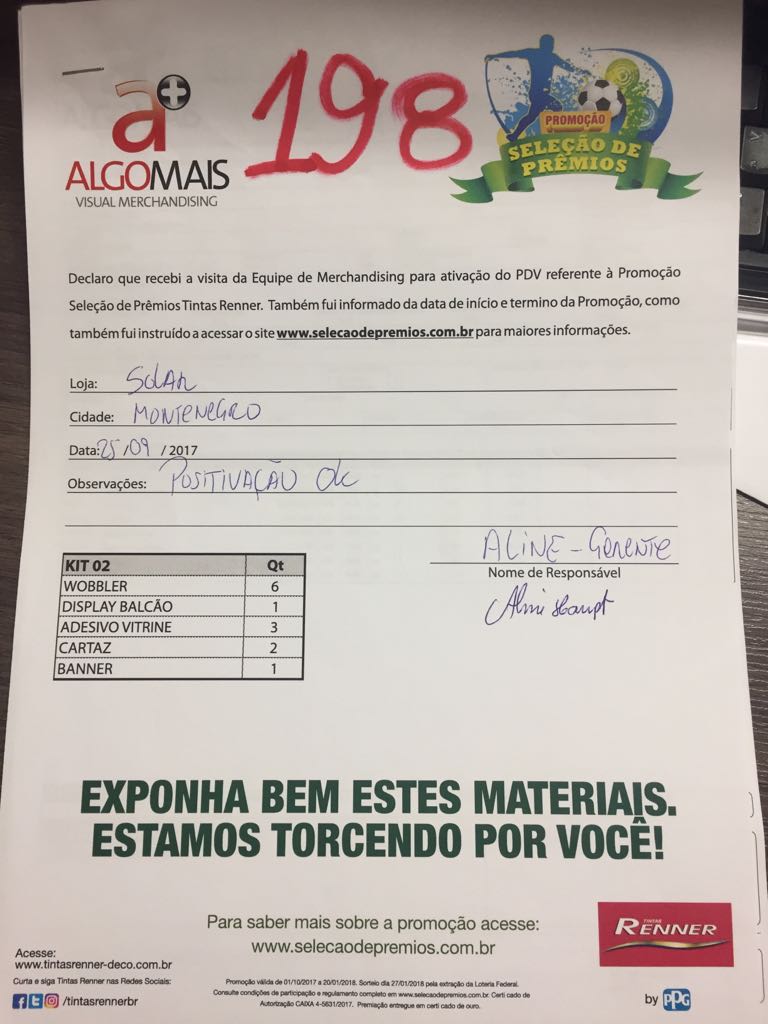 a+
ALGOMAIS
VISUAL MERCHANDISING
198
PROMOÇÃO
SELEÇÃO DE
PRÊMIOS
Declaro que recebi a visita da Equipe de Merchandising para ativação do PDV referente à Promoção
Seleção de Prêmios Tintas Renner. Também fui informado da data de início e termino da Promoção, como
também fui instruído a acessar o site www.selecaodepremios.com.br para maiores informações.
Loja: SOLAR
Cidade: MONTENEGRO
Data: 25/09 / 2017
Observações: POSITIVAÇÃO OK
ALINE - GERENTE
Nome de Responsável
KIT 02 Qt
WOBBLER 6
DISPLAY BALCÃO 1
ADESIVO VITRINE 3
CARTAZ 2
BANNER 1
EXPONHA BEM ESTES MATERIAIS.
ESTAMOS TORCENDO POR VOCÊ!
Para saber mais sobre a promoção acesse:
www.selecaodepremios.com.br
TINTAS
RENNER
Acesse:
www.tintasrenner-deco.com.br
Curta e siga Tintas Renner nas Redes Sociais:
/tintasrennerbr
Promoção válida de 01/10/2017 a 20/01/2018. Sorteio dia 27/01/2018 pela extração da Loteria Federal.
Consulte condições de participação e regulamento completo em www.selecaodepremios.com.br. Certi cado de
Autorização CAIXA 4-5631/2017. Premiação entregue em certi cado de ouro.
by PPG